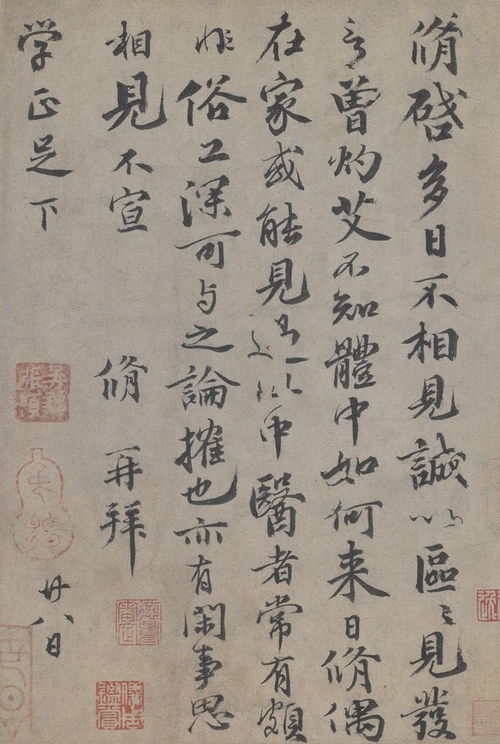 脩啓多日不相見誠以區〻見發
言曾灼艾不知體中如何来日脩偶
在家或能見過以中醫者常有頗
非俗工深可与之論搉也亦有閑事思
相見不宣 脩再拜
学正足下 廿八日